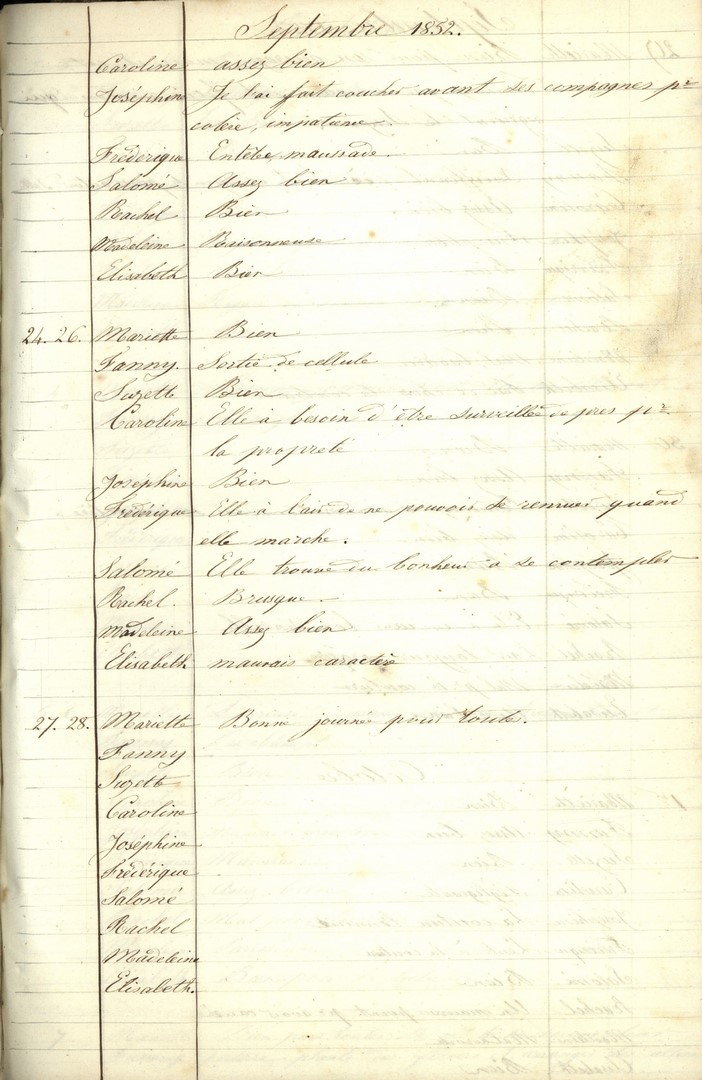 Septembre 1852.
Caroline assez bien
Joséphine Je l'ai fait coucher avant ses compagnes pr
colère, impatience.
Fréderique Entêtée, maussade.
Salomé Assez bien
Rachel Bien
Madeleine Raisonneuse
Elisabeth Bien
24. 26. Mariette Bien
Fanny. Sortie de cellule
Suzette Bien
Caroline Elle à besoin d'être surveillée de près pr
la propreté
Joséphine Bien
Frédérique Elle à l'air de ne pouvoir se remuer quand
elle marche.
Salomé Elle trouve du bonheur à se contempler
Rachel. Brusque.
Madeleine Assez bien
Elisabeth mauvais caractère
27. 28. Mariette Bonne journée pour toutes.
Fanny
Suzette
Caroline
Joséphine
Frédérique
Salomé
Rachel
Madeleine
Elisabeth.